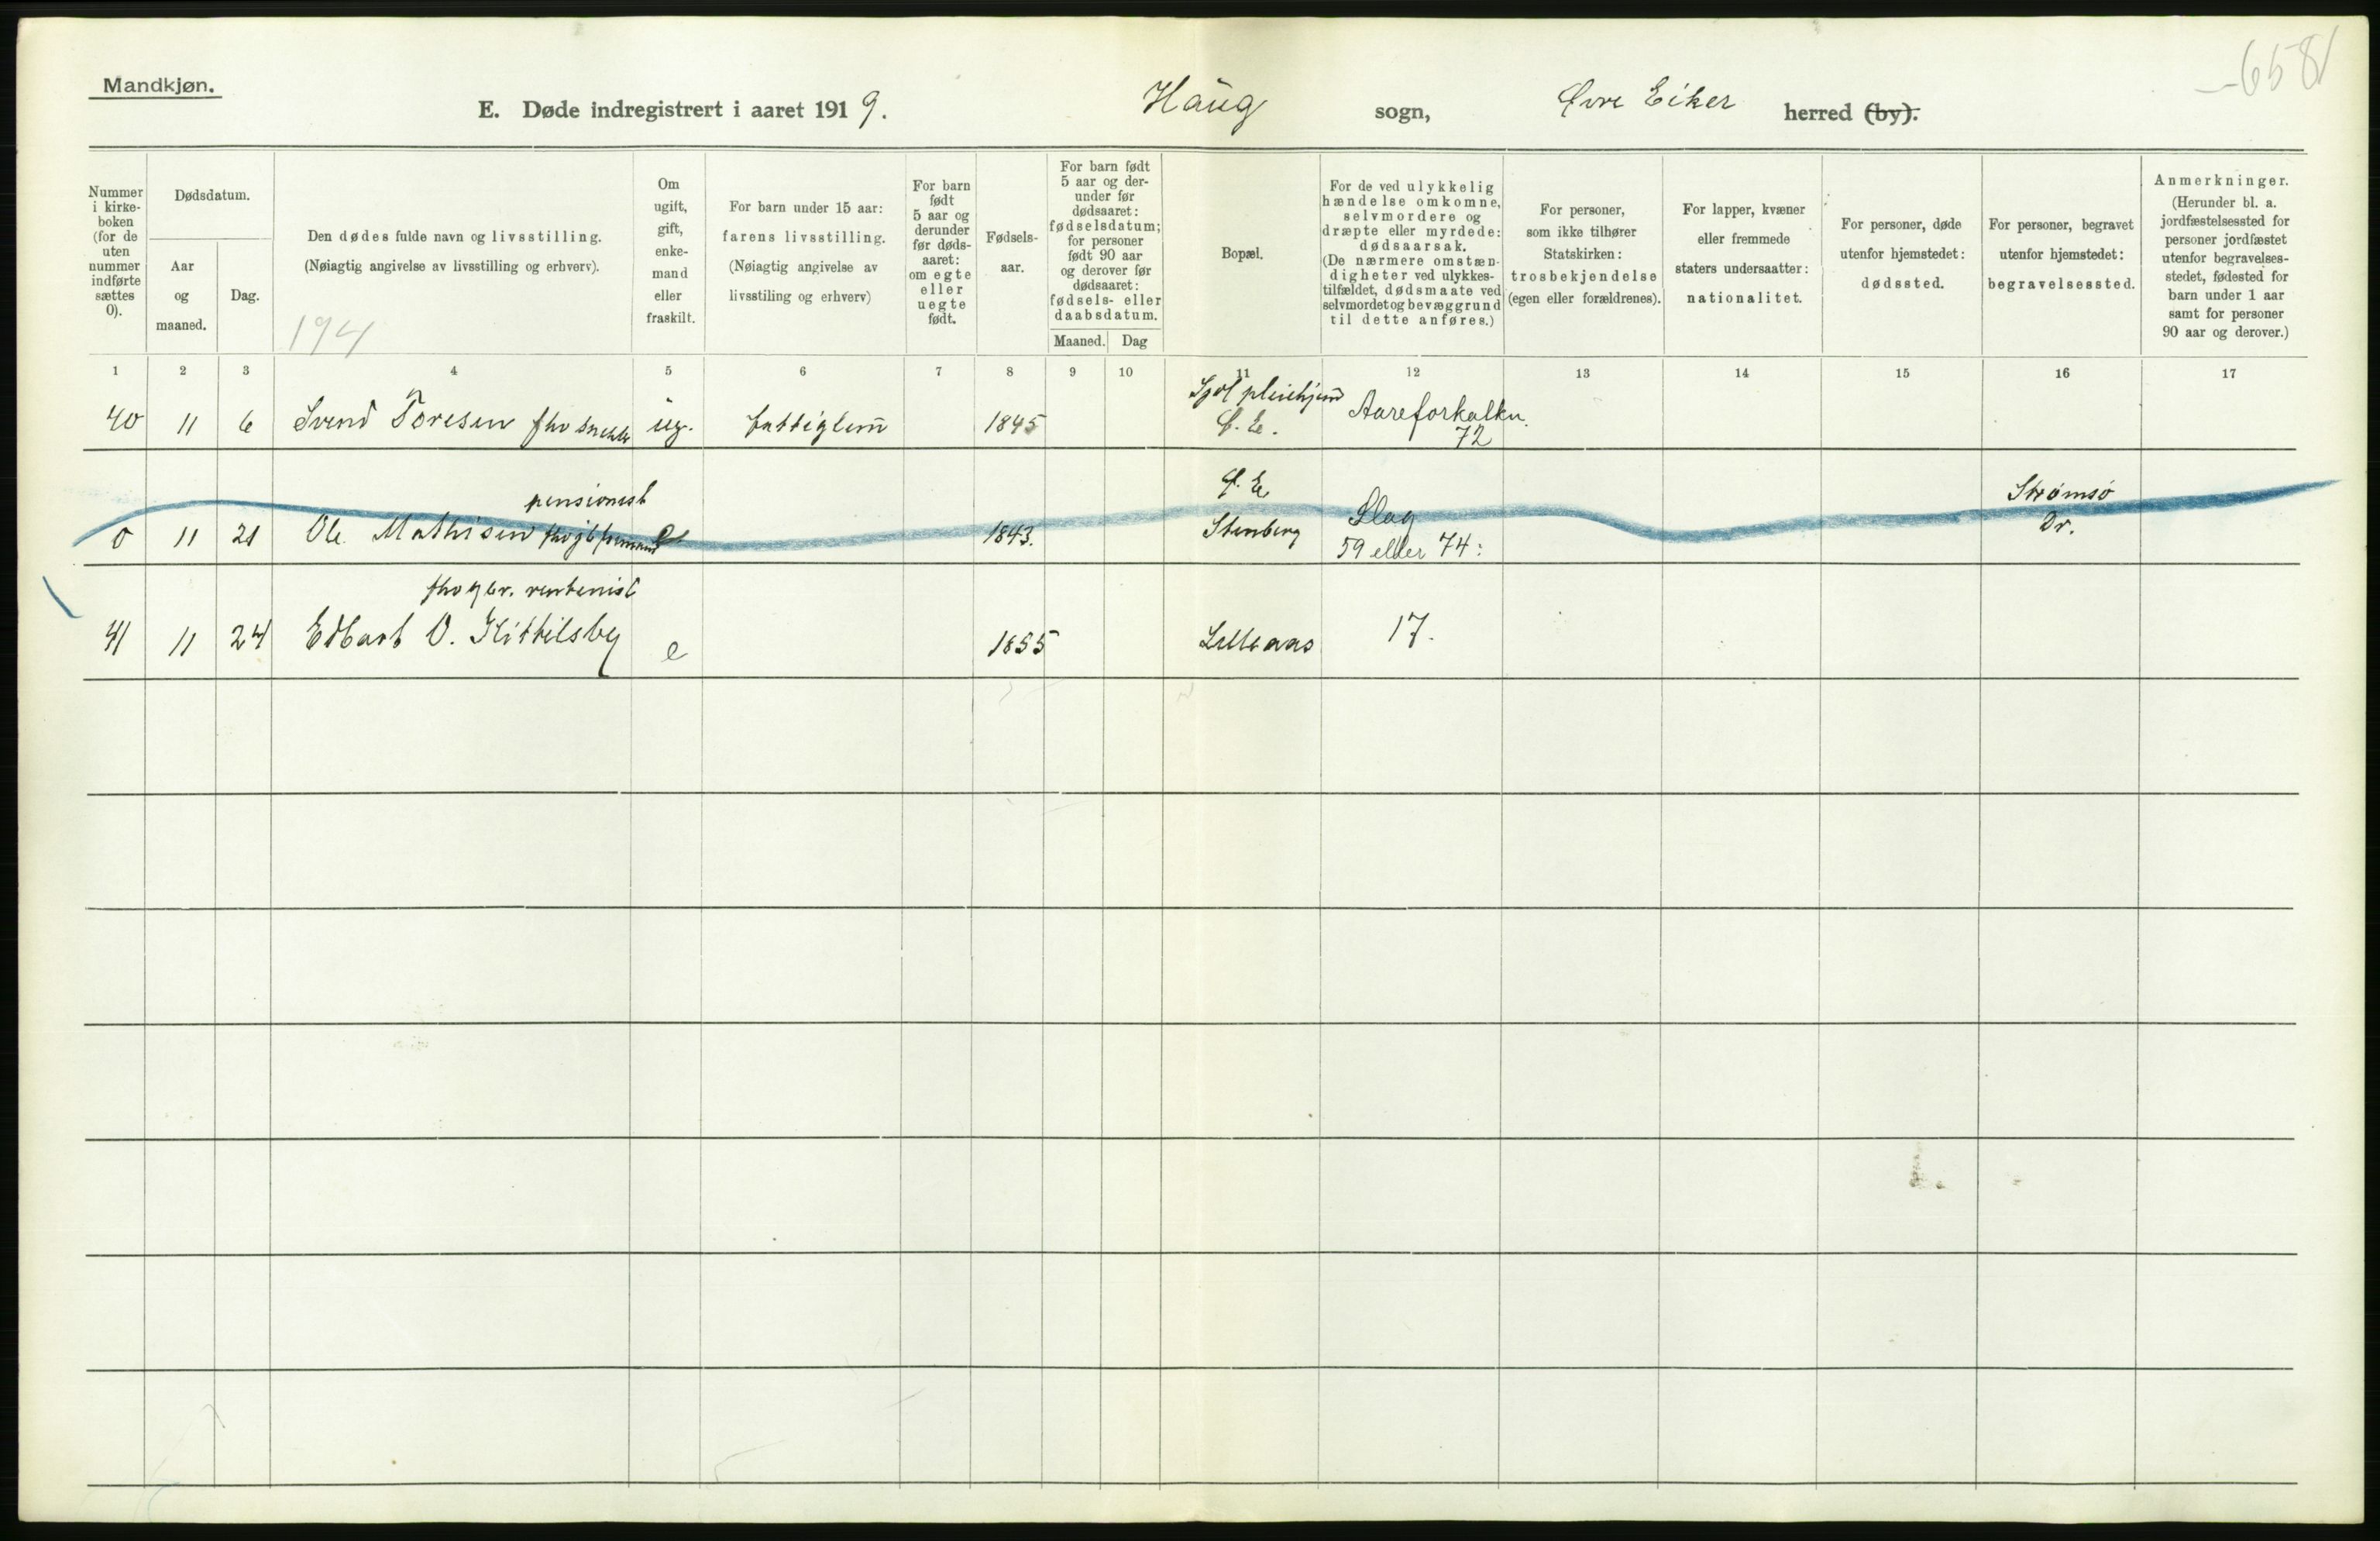 Mandkjøn.
-658
E. Døde indregistrert i aaret 1919. Haug sogn, Øvre Eiker herred (by).
Nummer i kirkeboken (for de uten nummer indførte sættes 0).
Dødsdatum.
Aar og maaned.
Dag.
Den dødes fulde navn og livsstilling.
(Nøiagtig angivelse av livsstilling og erhverv).
194
Om ugift, gift, enkemand eller fraskilt.
For barn under 15 aar: farens livsstilling.
(Nøiagtig angivelse av livsstiling og erhverv)
For barn født 5 aar og derunder før dødsaaret: om egte eller uegte født.
Fødselsaar.
For barn født 5 aar og derunder før dødsaaret: fødselsdatum; for personer født 90 aar og derover før dødsaaret: fødsels- eller daabsdatum.
Maaned. Dag
Bopæl.
For de ved ulykkelig hændelse omkomne, selvmordere og dræpte eller myrdede: dødsaarsak.
(De nærmere omstændigheter ved ulykkestilfældet, dødsmaate ved selvmordet og bevæggrund til dette anføres.)
For personer, som ikke tilhører Statskirken: trosbekjendelse (egen eller forældrenes).
For lapper, kvæner eller fremmede staters undersaatter: nationalitet.
For personer, døde utenfor hjemstedet: dødssted.
For personer, begravet utenfor hjemstedet: begravelsessted.
Anmerkninger.
(Herunder bl. a. jordfæstelsessted for personer jordfæstet utenfor begravelsesstedet, fødested for barn under 1 aar samt for personer 90 aar og derover.)
1 2 3 4 5 6 7 8 9 10 11 12 13 14 15 16 17
40 11 6 Svend Toresen fhv ug. fattiglem 1845 Ø. E. Aareforkalkn. 72
pensionist
0 11 21 Ole Mathisen e 1843. Ø. E Stenberg Slag 59 eller 74: Strømsø Dr.
fhv gbr. rentenist
41 11 24 Edvart O. Kittilsby e 1855 Lilleaas 17.